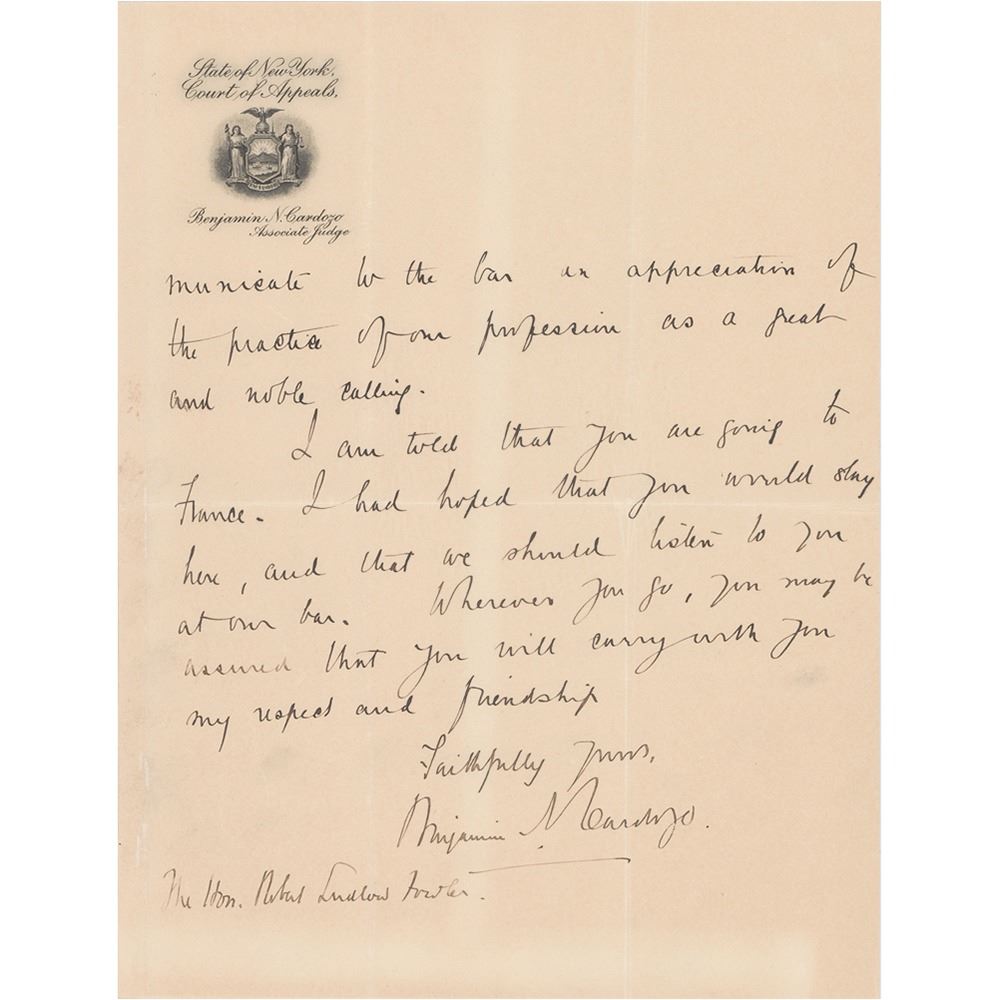 State of New York.
Court of Appeals.
Benjamin N. Cardozo
Associate Judge
municate to the bar an appreciation of
the practice of our profession as a great
and noble calling.
I am told that you are going to
France. I had hoped that you would stay
here, and that we should listen to you
at our bar. Wherever you go, you may be
assured that you will carry with you
my respect and friendship
Faithfully yours,
Benjamin N. Cardozo.
The Hon. Robert Ludlow Fowler.